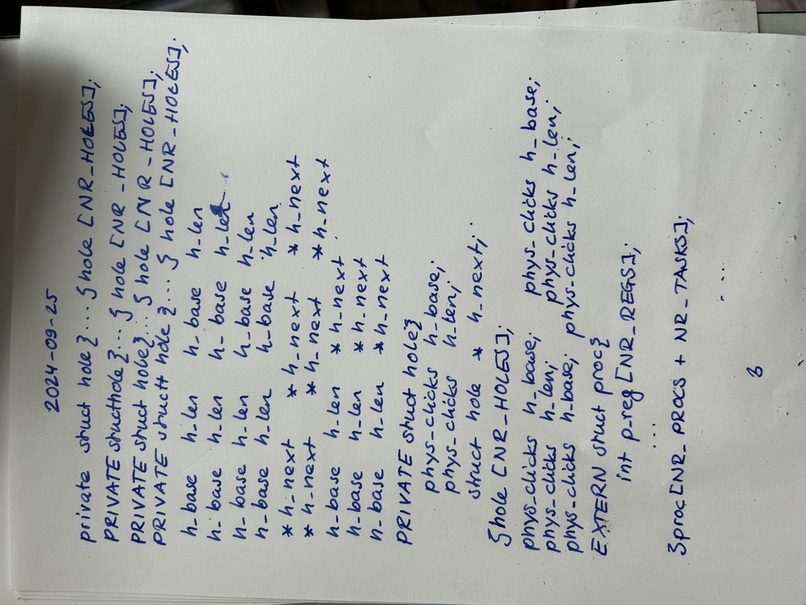 2024-09-25
private struct hole } ... } hole [NR_HOLES];
PRIVATE structhole } ... } hole [NR_HOLES];
PRIVATE struct hole } ... } hole [NR-HOLES];
PRIVATE struct hole } ... } hole [NR-HOLES];
h_base h_len h_base h_len
h_base h_len h_base
h_base h_len h_base h_len
h_base h_len h_base h_len
*h_next *h_next *h_next
*h_next *h_next *h_next
h_base h_len *h_next
h_base h_len *h_next
h_base h_len *h_next
PRIVATE struct hole }
phys-clicks h_base;
phys-clicks h_len;
struct hole * h_next;
} hole [NR_HOLES];
phys_clicks h_base; phys_clicks h_base;
phys_clicks h_len; phys_clicks h_len;
phys_clicks h_base; phys-clicks h_len;
EXTERN struct proc }
int p_reg [NR_REGS];
...
} proc [NR_PROCS + NR_TASKS];
...
3